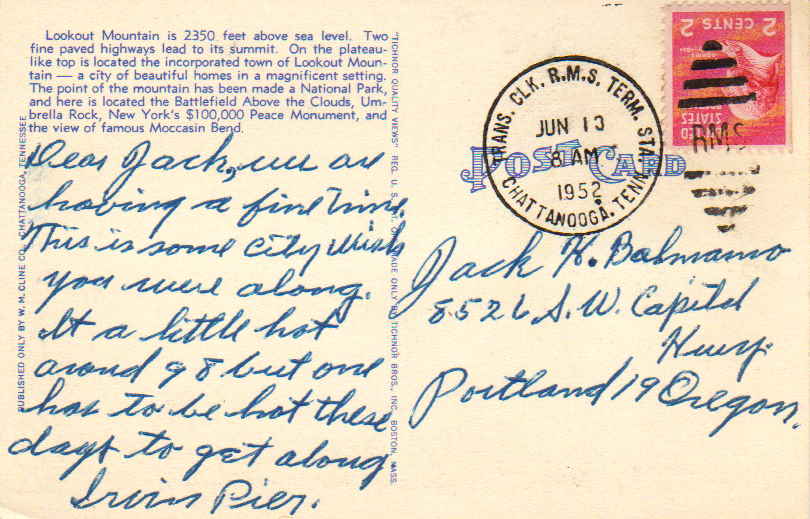 Lookout Mountain is 2350 feet above sea level. Two
fine paved highways lead to its summit. On the plateau-
like top is located the incorporated town of Lookout Moun-
tain — a city of beautiful homes in a magnificent setting.
The point of the mountain has been made a National Park,
and here is located the Battlefield Above the Clouds, Um-
brella Rock, New York's $100,000 Peace Monument, and
the view of famous Moccasin Bend.
Dear Jack, we are
having a fine time.
This is some city wish
you were along.
It a little hot
around 98 but one
has to be hot these
days to get along
Irvin Pier.
PUBLISHED ONLY BY W. M. CLINE CO., CHATTANOOGA, TENNESSEE
"TICHNOR QUALITY VIEWS" REG. U. S. PAT. OFF. MADE ONLY BY TICHNOR BROS., INC. BOSTON, MASS.
POST CARD
TRANS. CLK. R.M.S. TERM. STA.
JUN 13
8 AM
1952
CHATTANOOGA, TENN.
RMS
2 CENTS 2
UNITED
STATES
Jack H. Balmanno
8526 S.W. Capitol
Hwy.
Portland 19 Oregon.